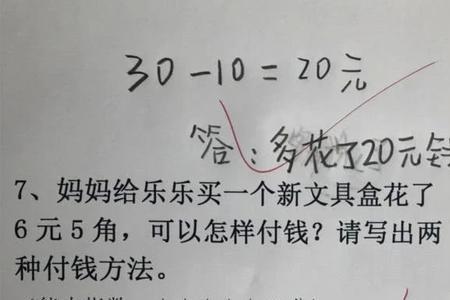 30-10=20元
答:多花了20元
7、妈妈给乐乐买一个新文具盒花了
6元5角,可以怎样付钱?请写出两
种付钱方法。